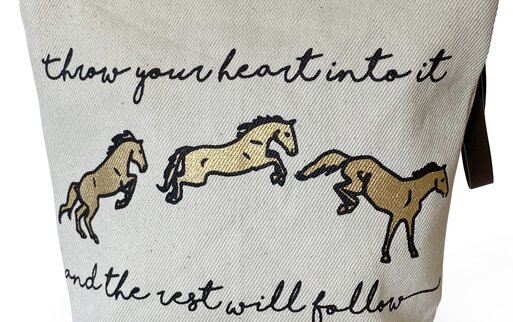 throw your heart into it
and the rest will follow